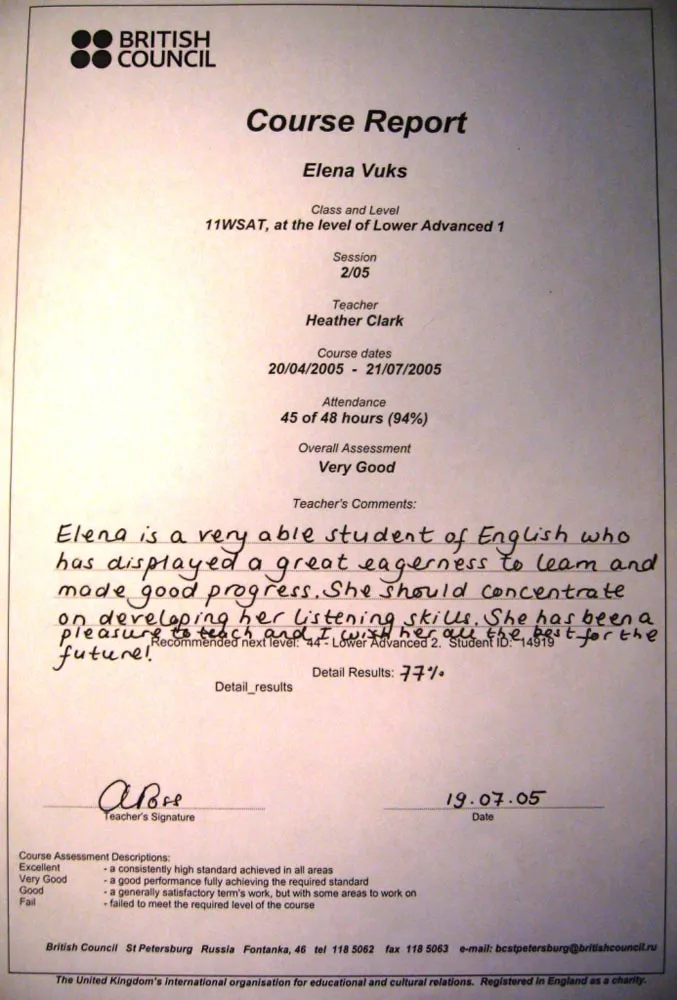 BRITISH
COUNCIL
Course Report
Elena Vuks
Class and Level
11WSAT, at the level of Lower Advanced 1
Session
2/05
Teacher
Heather Clark
Course dates
20/04/2005 - 21/07/2005
Attendance
45 of 48 hours (94%)
Overall Assessment
Very Good
Teacher's Comments:
Elena is a very able student of English who
has displayed a great eagerness to learn and
made good progress. She should concentrate
on developing her listening skills. She has been a
pleasure to teach and I wish her all the best for the
future!
Recommended next level: 44 - Lower Advanced 2. Student ID: 14919
Detail Results: 77%
Detail_results
19.07.05
Teacher's Signature
Date
Course Assessment Descriptions:
Excellent - a consistently high standard achieved in all areas
Very Good - a good performance fully achieving the required standard
Good - a generally satisfactory term's work, but with some areas to work on
Fail - failed to meet the required level of the course
British Council St Petersburg Russia Fontanka, 46 tel 118 5062 fax 118 5063 e-mail: bcstpetersburg@britishcouncil.ru
The United Kingdom's international organisation for educational and cultural relations. Registered in England as a charity.